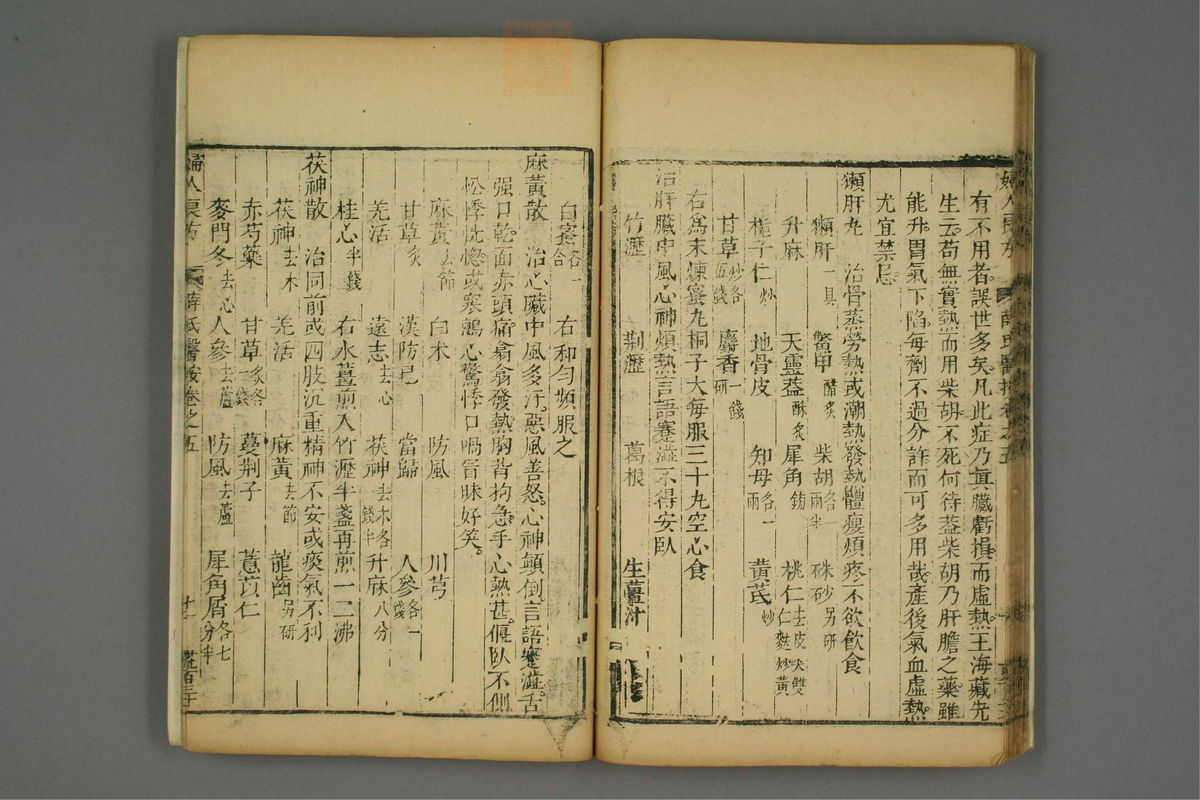 婦人良方 薛氏醫按卷之五
有不用者誤世多矣凡此症乃眞臟虧損而虛熱王海藏先
生云苟無實熱而用柴胡不死何待葢柴胡乃肝膽之藥雖
能升胃氣下陷每劑不過分許而可多用哉產後氣血虛熱
尤宜禁忌
獺肝丸 治骨蒸勞熱或潮熱發熱體瘦煩疼不欲飲食
獺肝一具 鱉甲醋炙 柴胡各一兩半 硃砂另研
升麻 天靈葢酥炙 犀角鎊 桃仁去皮尖雙仁麩炒黃
梔子仁炒 地骨皮 知母各一兩 黃芪炒
甘草炒各五錢 麝香一錢研
右爲末煉蜜丸桐子大每服三十丸空心食
治肝臟中風心神煩熱言語蹇澁不得安臥
竹瀝 荆瀝 葛根 生薑汁
白蜜各一合 右和勻頻服之
麻黃散 治心臟中風多汗惡風善怒心神顚倒言語蹇澁舌
强口乾面赤頭痛翕翕發熱胸背拘急手心熱甚偃臥不側
忪悸恍惚或寒鷩心驚悸口喎冒昧好笑
麻黃去節 白术 防風 川芎
甘草炙 漢防己 當歸 人參各一錢
羌活 遠志去心 茯神去木各錢半 升麻八分
桂心半錢 右水薑煎入竹瀝半盞再煎一二沸
茯神散 治同前或四肢沉重精神不安或痰氣不利
茯神去木 羌活 麻黃去節 龍齒另研
赤芍藥 甘草炙各一錢 蔓荆子 薏苡仁
麥門冬去心 人參去蘆 防風去蘆 犀角屑各七分半
婦人良方 薛氏醫按卷之五 十一